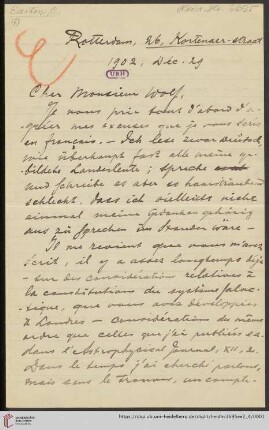 Rotterdam, 26, Kortenaer-straat
1902, Dec. 29
UBH
Cher Monsieur Wolf,
Je vous prie tout d'abord d'a-
gréer mes excuses que je vous écris
en français. — Ich lese zwar deutsch,
wie überhaupt fast alle meine ge-
bildete Landesleute; spreche
und schreibe es aber so haarsträubend
schlecht, dass ich vielleicht nicht
einmal meine Gedanken gehörig
aus zu sprechen im Stande wäre —
Il me revient que vous m'avez
écrit, il y a assez longtemps déjà
— sur des considérations relatives à
la constitution du système galac-
tique, que vous avez développées
à Londres — considérations du même
ordre que celles que j'ai publiées
dans l'Astrophysical Journal, XII, 2.
Dans le temps j'ai cherché partout,
mais sans le trouver, un compte-